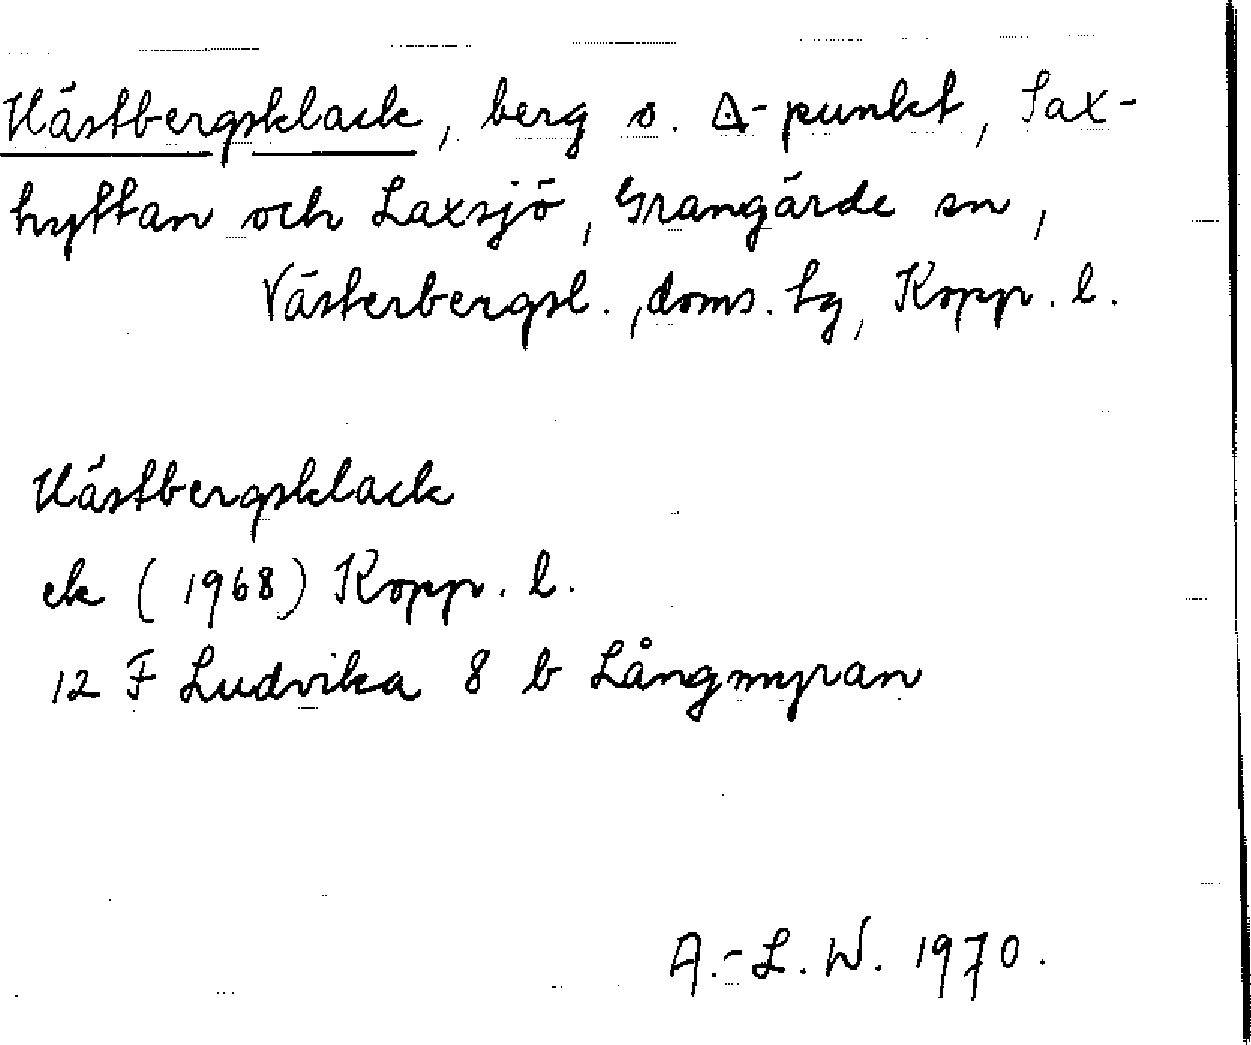 Hästbergsklack, berg o. △-punkt, Sax-
hyttan och Laxsjö, Grangärde sn,
Västerbergsl., doms. tg, Kopp. l.
Hästbergsklack
ek (1968) Kopp. l.
12 F Ludvika 8 b Långmyran
A.-L. W. 1970.